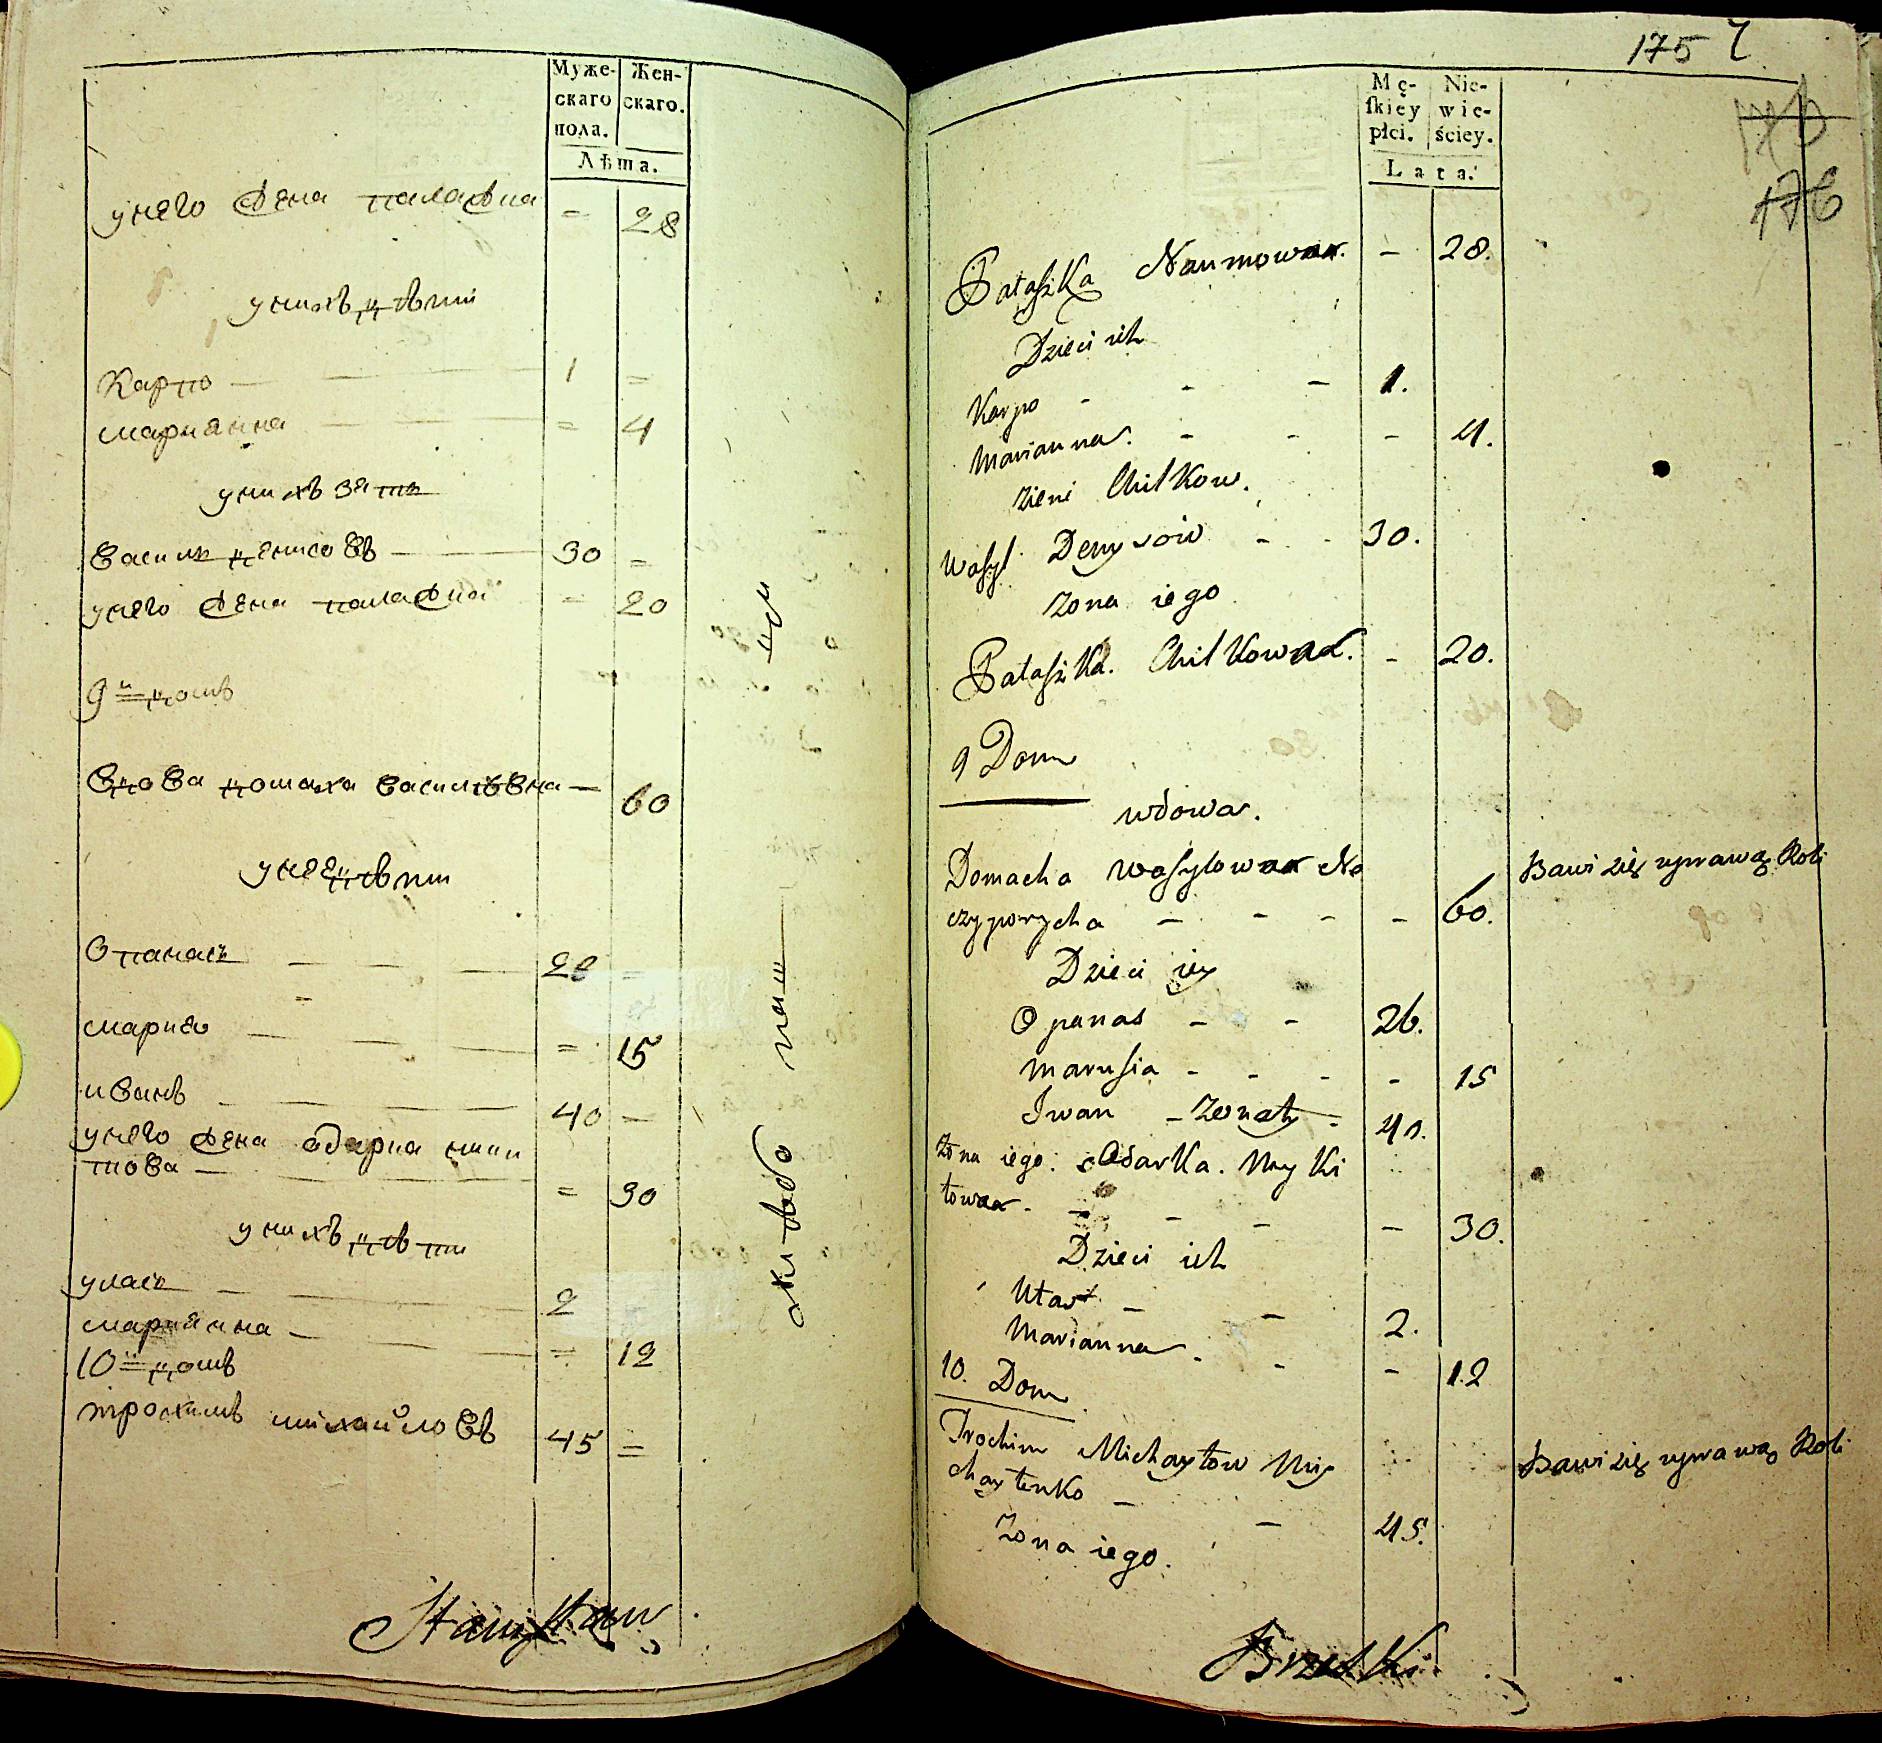 Муже-
скаго
пола.
Жен-
скаго.
Лѣта.
у него жена палажка = 28
у нихъ дѣти
Карпо 1 =
марианна = 4
у нихъ зять
василь денисовъ 30 =
у него жена палажка = 20
9й домъ
вдова домаха васильѣвна — 60
у нее дѣти
Опанасъ
марися = 15
иванъ 40 —
у него жена одарка мики
това = 30
у нихъ дѣти
уласъ 2
марианна = 12
10й домъ
трохимъ михайловъ 45 =
Stanisław
175
176
Mę-
skiey
płci.
Nie-
wie-
ściey.
Lata.
Pałaszka Naumowna. - 28.
Dzieci ich
Karpo - - - 1.
Marianna. - - - 4.
Wasyl Denysow - - 30.
Żona iego
Pałaszka. - 20.
9 Dom
wdowa.
Domacha Wasylowna Ne
czyporycha - - - - 60.
Bawi się uprawą Roli
Dzieci iey
Opanas - - 26.
Marusia - - - - 15
Iwan - Żonaty - 40.
Żona iego. Odarka. Myki
towna - - - - - 30.
Dzieci ich
Ułas - - 2.
Marianna - - - 12
10. Dom
Trochim Michayłow Mi
chayłenko - - 45.
Bawi się uprawą Roli
Żona iego.